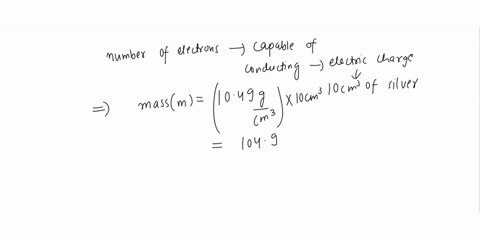 number of electrons → capable of
conducting → electric charge
⇒ mass(m) = (10.49 g/cm³) × 10cm³ 10cm³ of silver
= 104.9